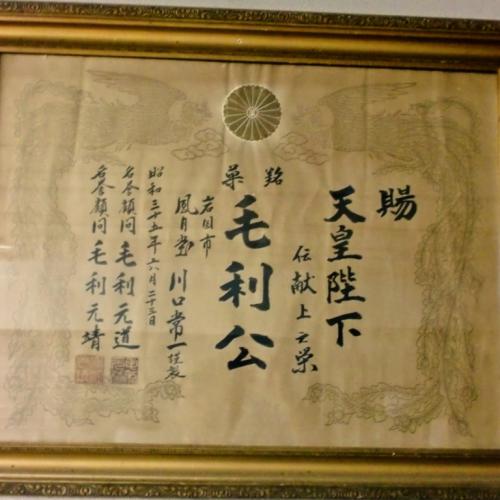 賜
天皇陛下
伝献上之栄
銘菓
毛利公
岩国市
風月堂 川口常一謹製
昭和三十五年六月二十三日
名誉顧問 毛利元道
名誉顧問 毛利元靖